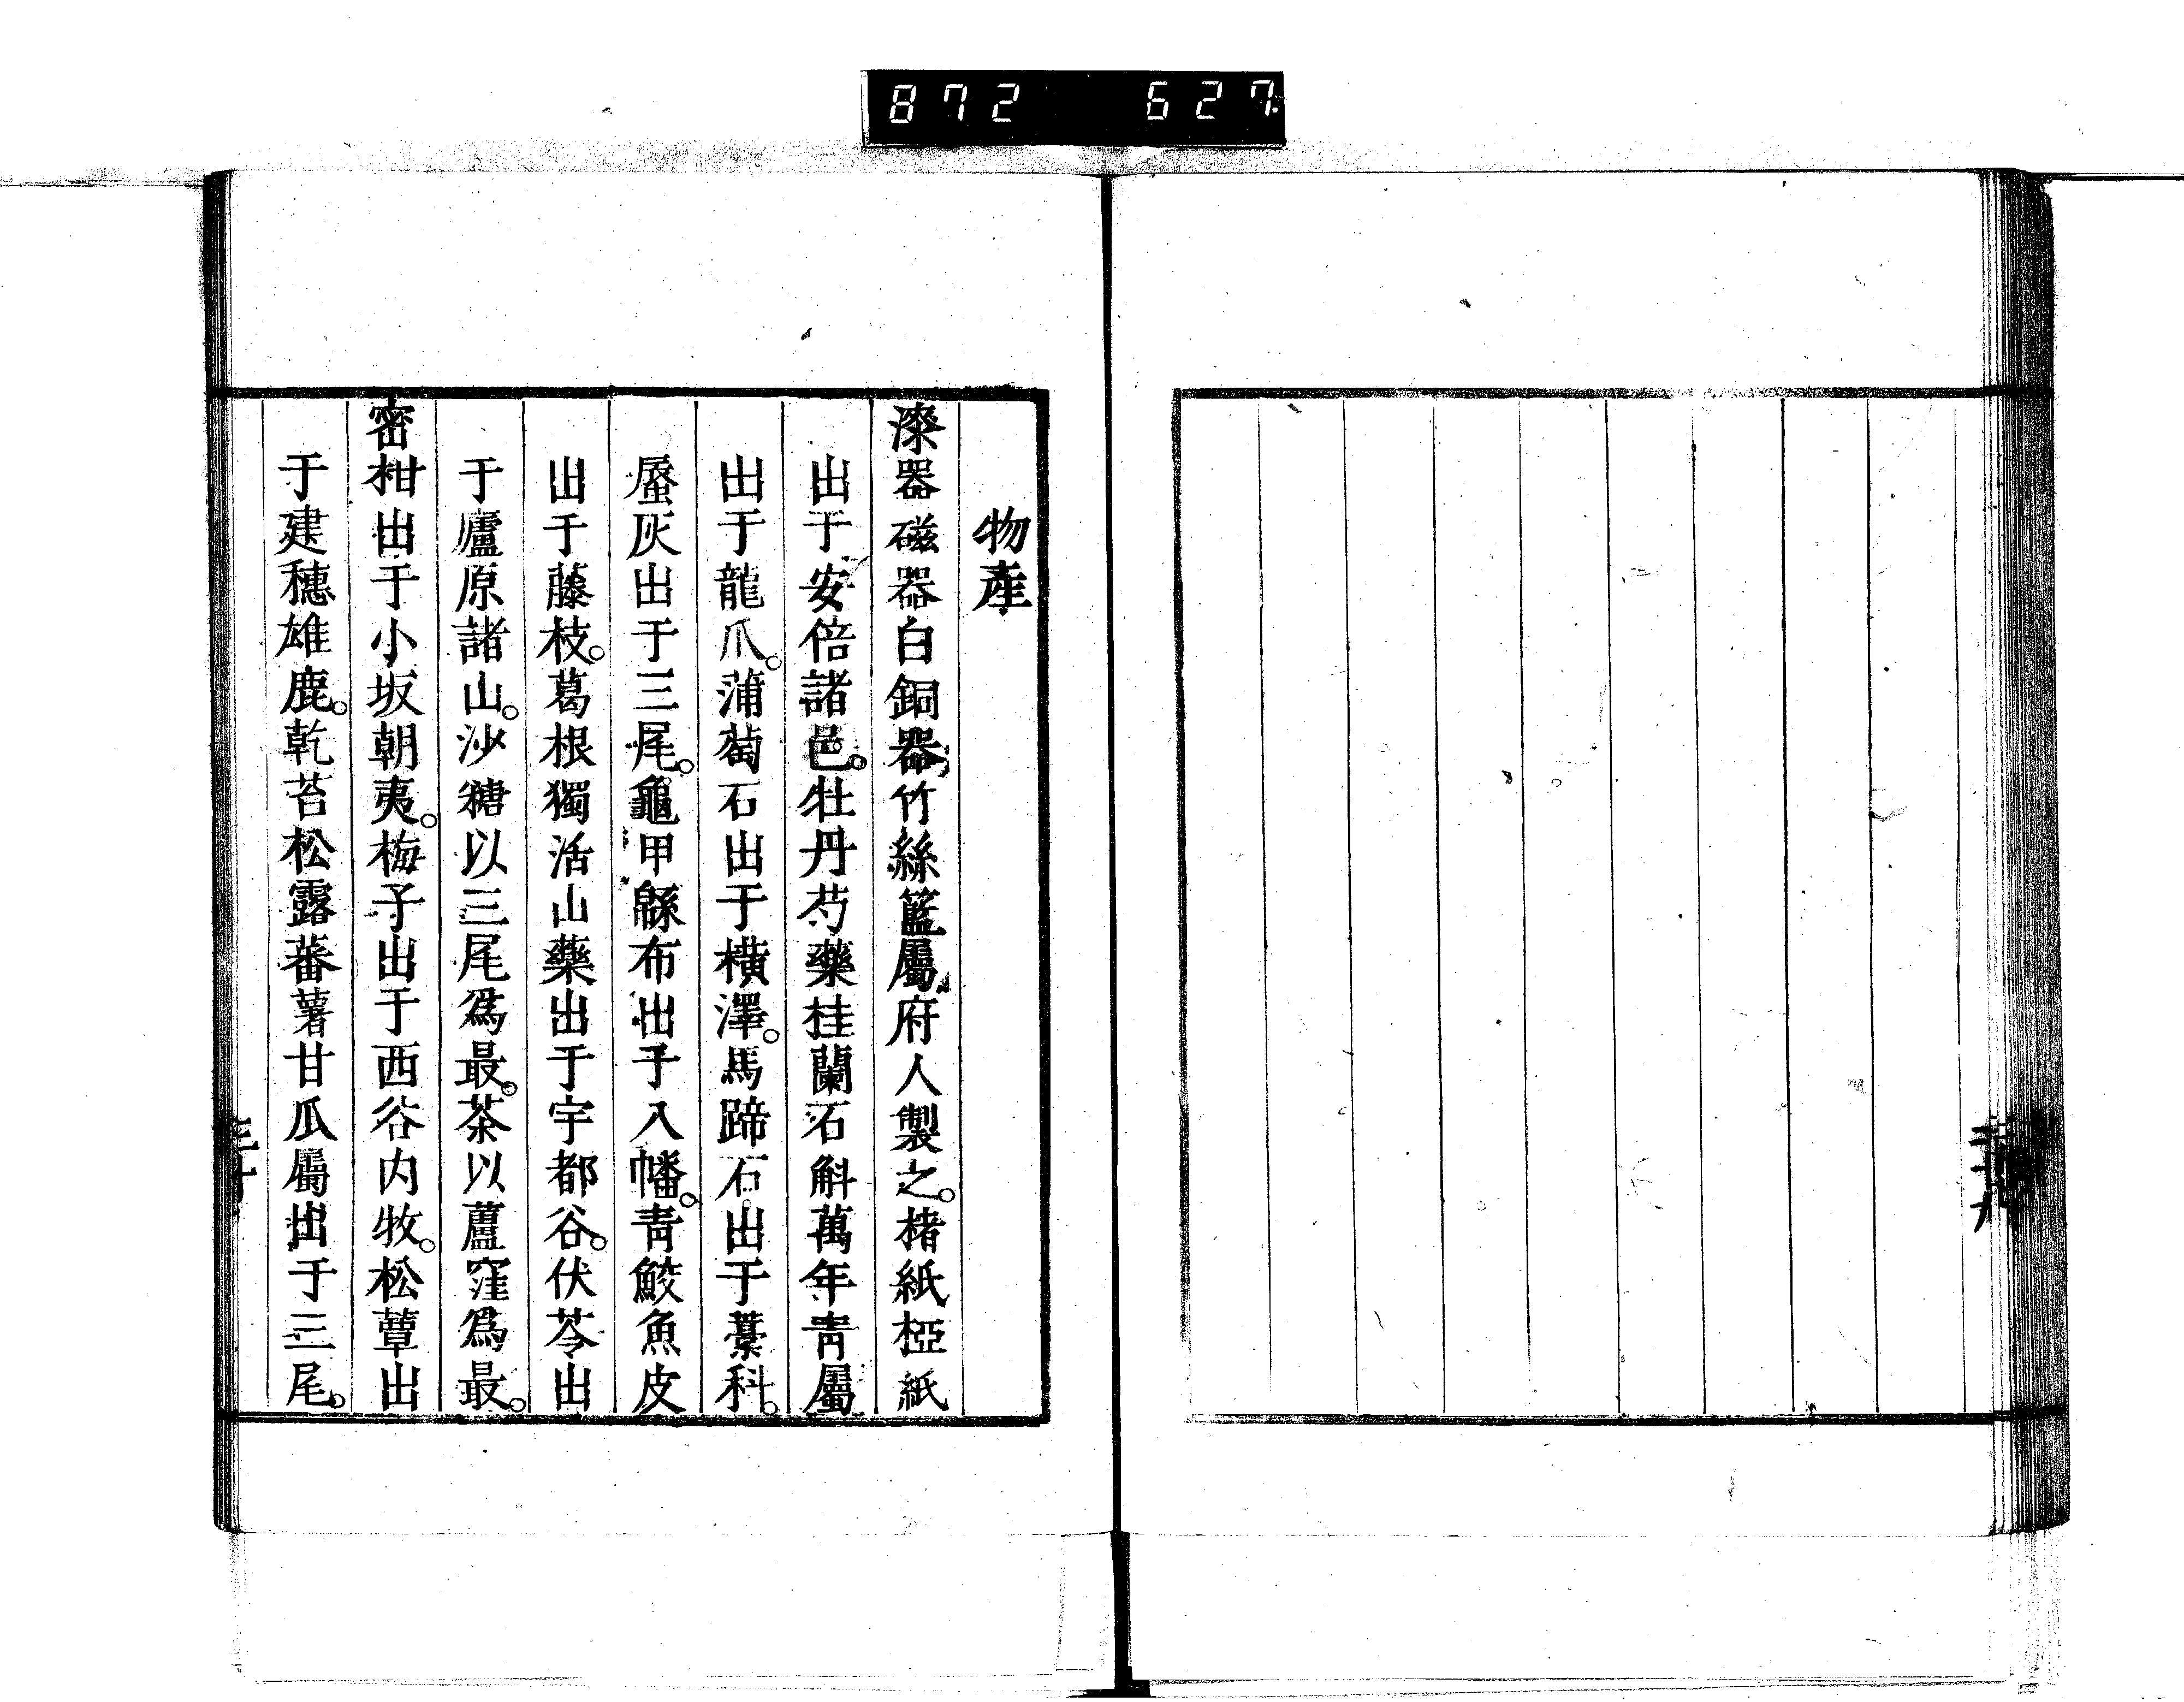 872 627
物產
漆器磁器白銅器竹絲籃屬府人製之。楮紙椏紙
出于安倍諸邑。牡丹芍藥桂蘭石斛萬年青屬
出于龍爪。蒲萄石出于橫澤。馬蹄石出于藁科。
蜃灰出于三尾。龜甲緜布出于八幡。青鮫魚皮
出于藤枝。葛根獨活山藥出于宇都谷。伏苓出
于廬原諸山。沙糖以三尾爲最。茶以蘆窪爲最。
密柑出于小坂朝夷。梅子出于西谷内牧。松蕈出
于建穗雄鹿。乾苔松露蕃薯甘瓜屬出于三尾。